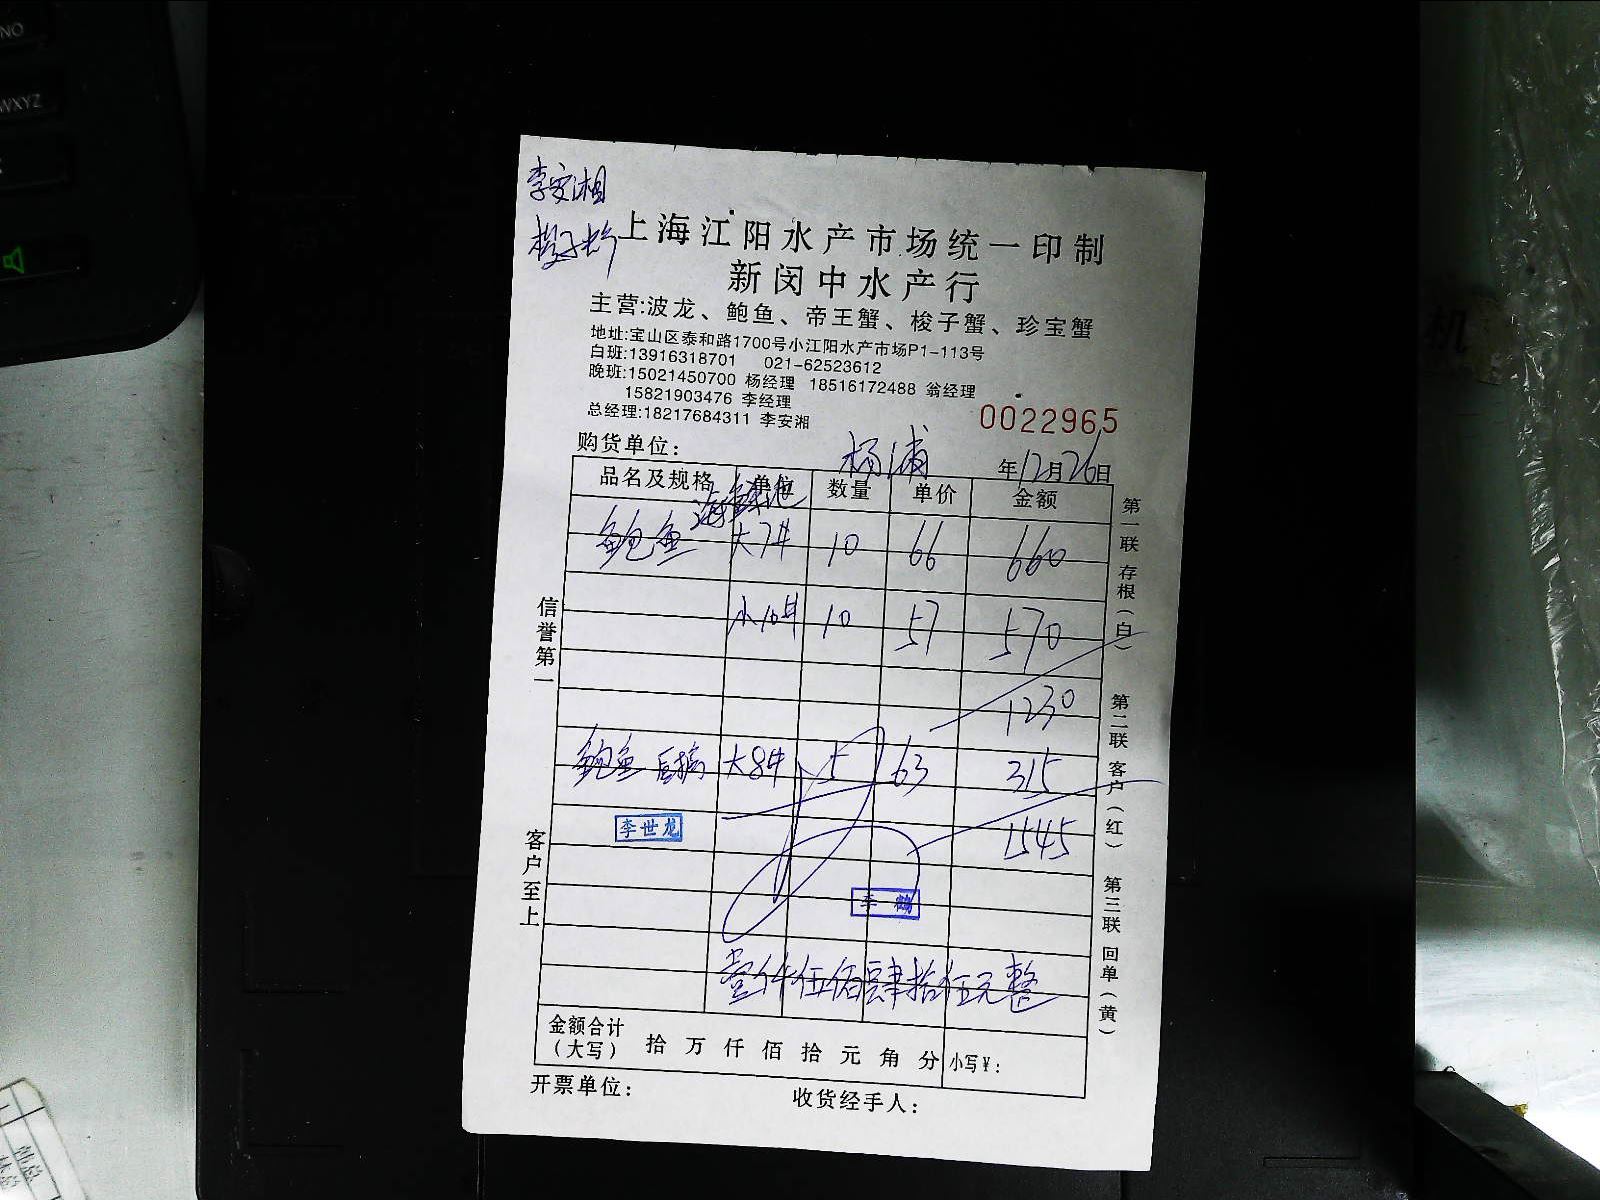 NO
WXYZ
李安湘
上海江阳水产市场统一印制
新闵中水产行
主营:波龙、鲍鱼、帝王蟹、梭子蟹、珍宝蟹
地址:宝山区泰和路1700号小江阳水产市场P1-113号
白班:13916318701 021-62523612
晚班:15021450700 杨经理 18516172488 翁经理
15821903476 李经理
总经理:18217684311 李安湘
0022965
购货单位: 杨浦 年12月26日
品名及规格 单位 数量 单价 金额
海鲜池
鲍鱼 大7# 10 66 660
小10# 10 57 570
1230
鲍鱼 大8# 5 63 315
李世龙 1545
李
壹仟伍佰肆拾伍元整
金额合计(大写) 拾 万 仟 佰 拾 元 角 分 小写¥:
开票单位: 收货经手人:
信誉第一
客户至上
第一联 存根(白)
第二联 客户(红)
第三联 回单(黄)
机